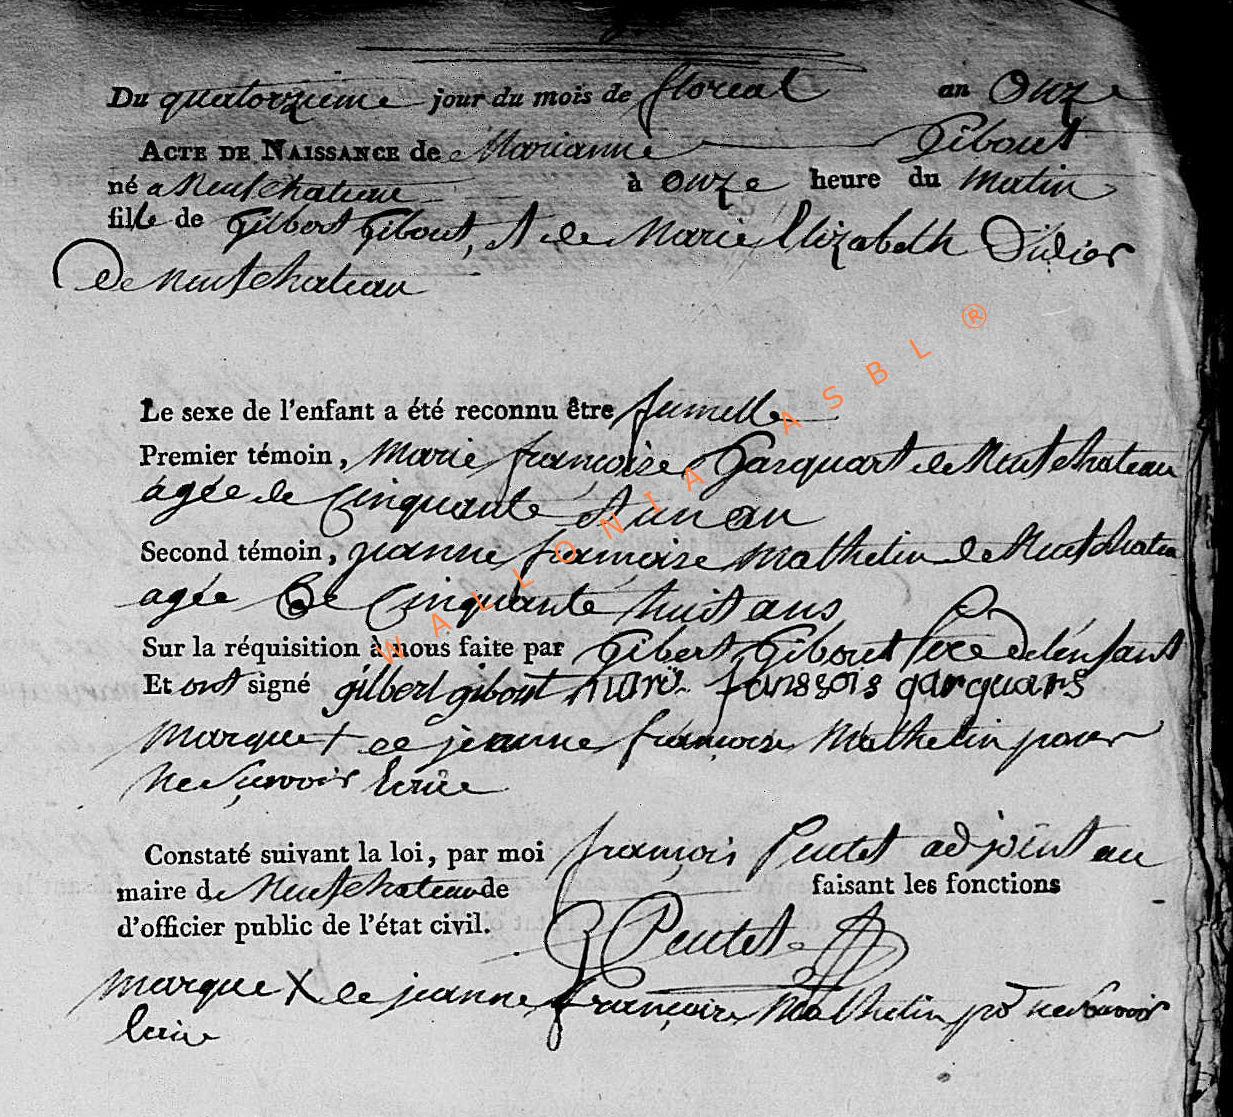 Du quatorzieme jour du mois de floreal an Onze
ACTE DE NAISSANCE de Marianne Gibout
né a Neufchateau à Onze heure du Matin
fille de Gilbert Gibout, et de Marie Elizabeth Didier
De Neufchateau
Le sexe de l'enfant a été reconnu être fumelle
Premier témoin, Marie françoise Garquart de Neufchateau
agée de Cinquante et un an
Second témoin, jeanne françoise Mathelin de Neufchateau
agée De Cinquante huit ans
Sur la réquisition à nous faite par Gibert Gibout Pere De l'enfant
Et ont signé gilbert gibout marï fanssois garquars
marque + de jeanne françoise Mathelin pour
Ne Sçavoir Ecrire
Constaté suivant la loi, par moi françois Peutet adjoint au
maire de Neufchateau de faisant les fonctions
d'officier public de l'état civil. Peutet
marque X de jeanne françoise Mathelin pr ne Savoir
Ecrire
WALLONIA ASBL ®